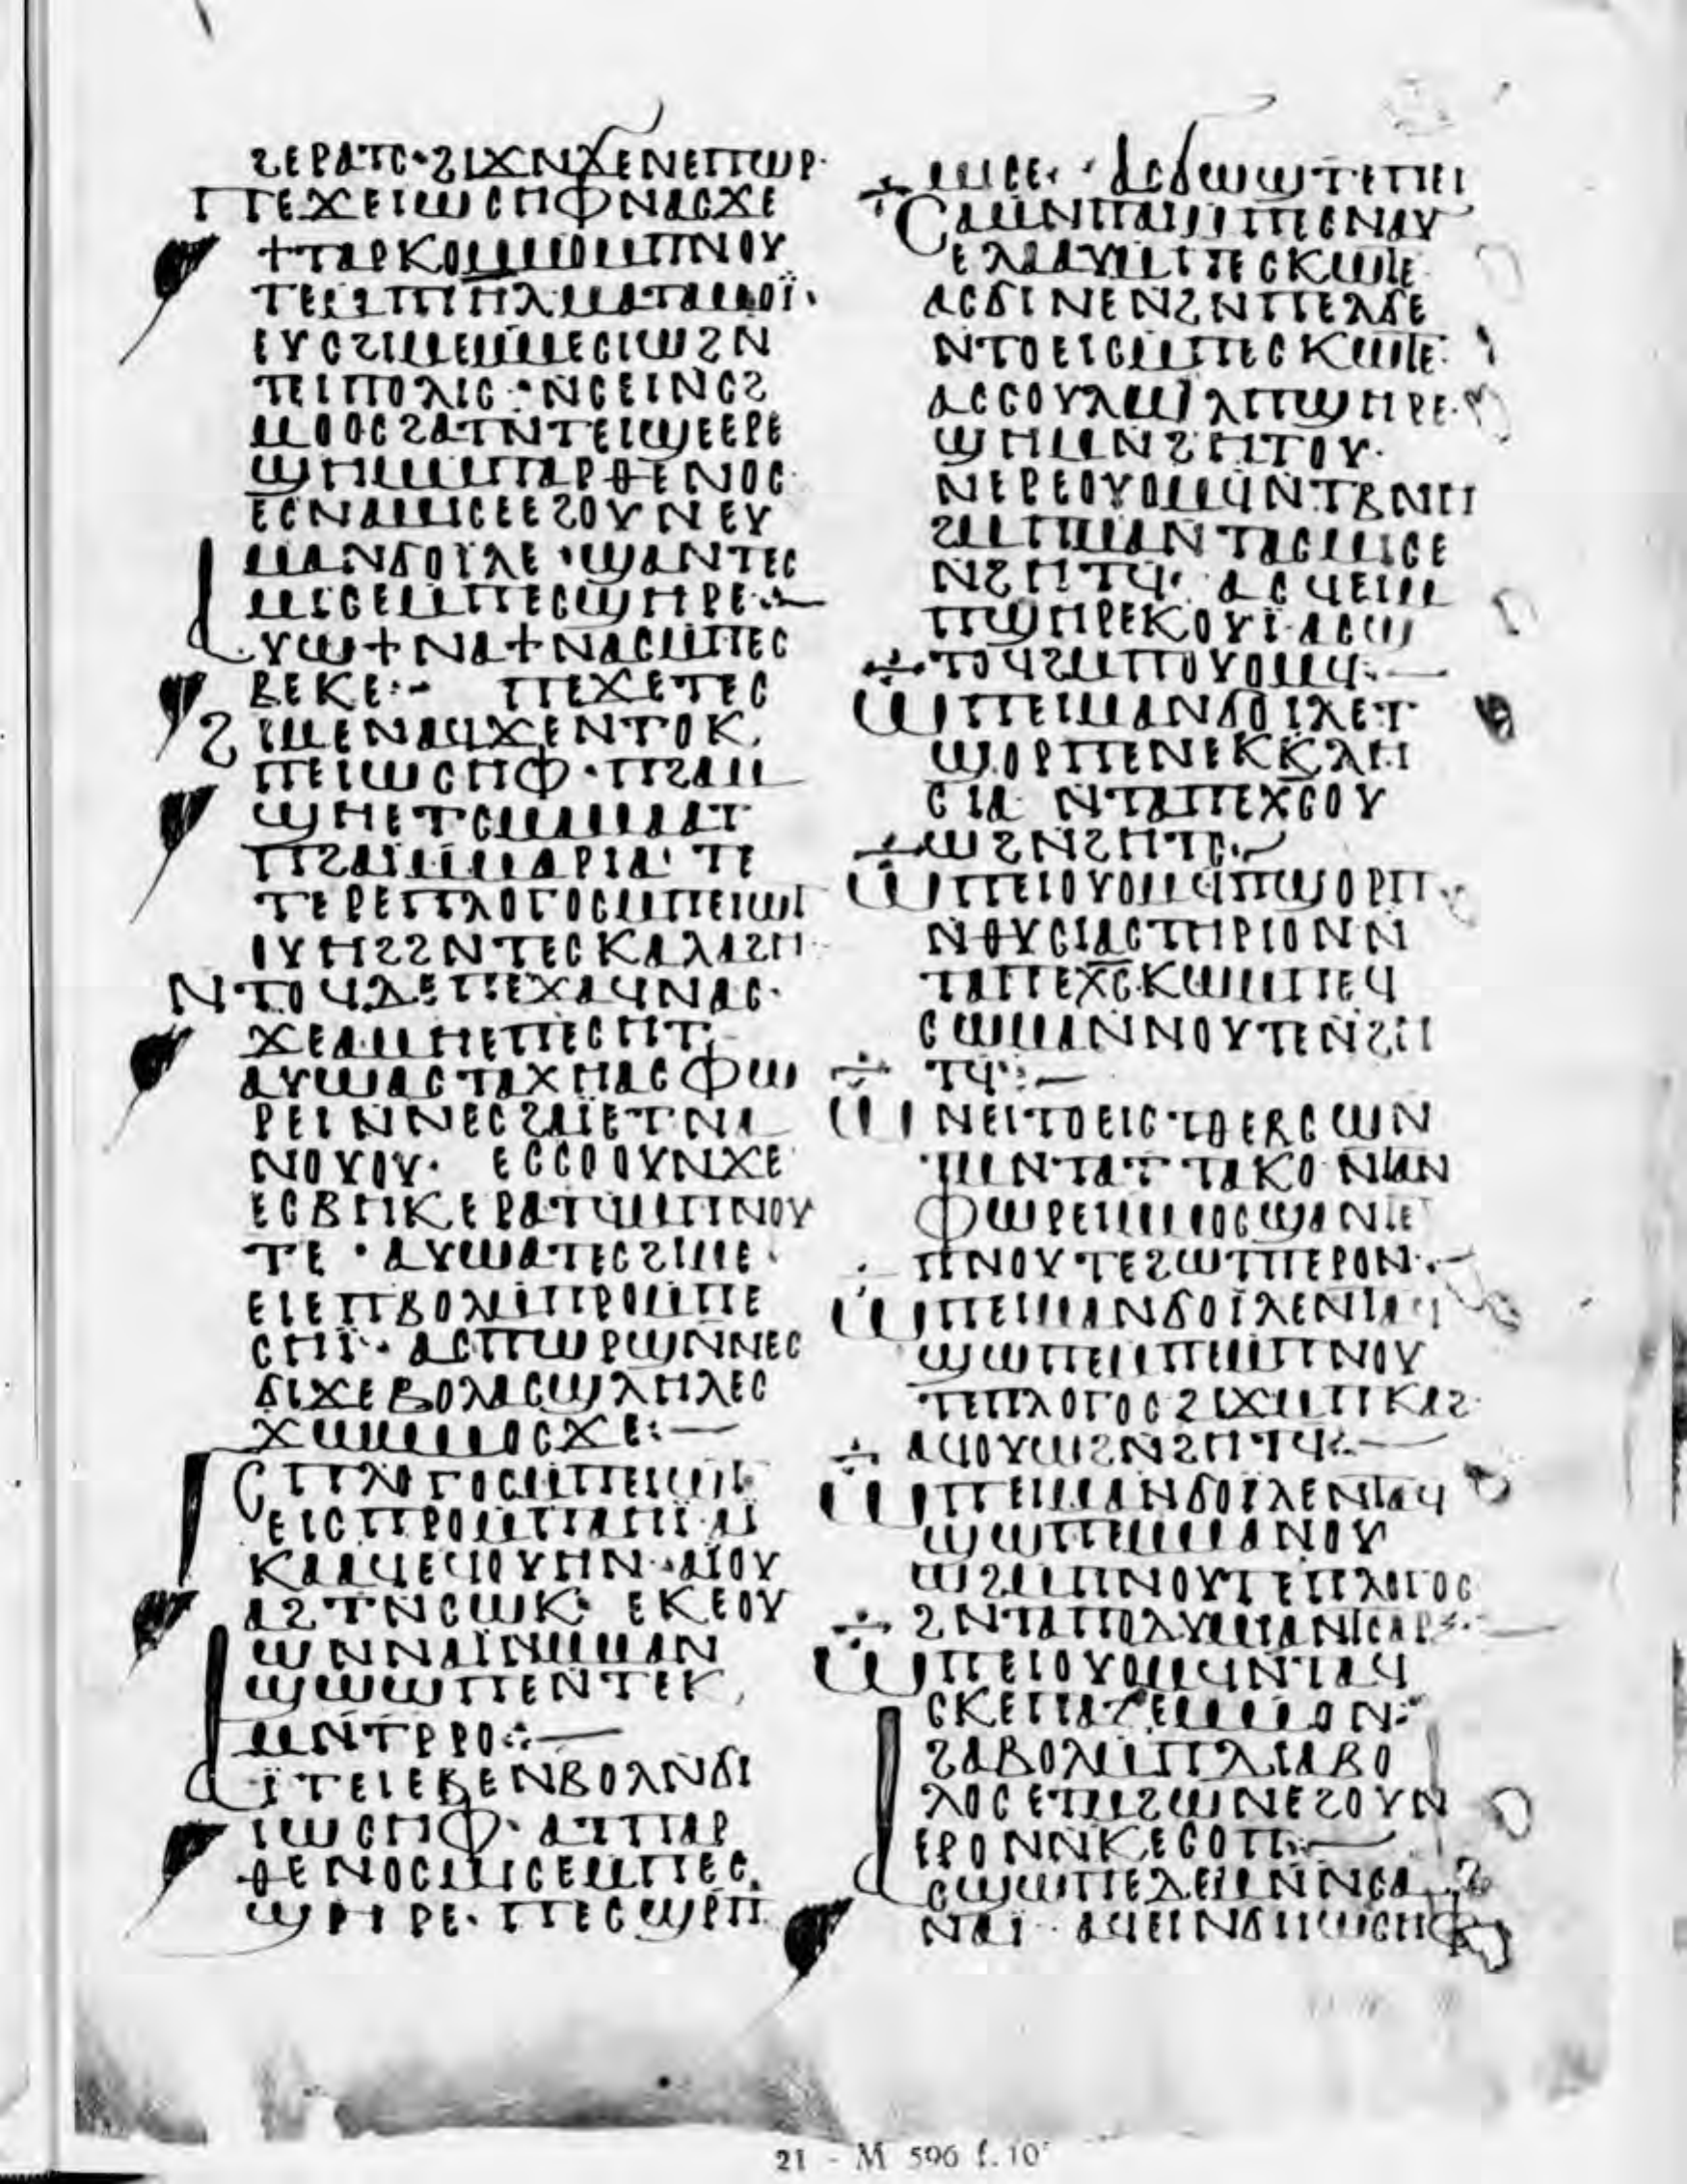 ϩⲉⲣⲁⲧⲥ· ϩⲓϫⲛϫⲉⲛⲉⲡⲱⲣ·
ⲡⲉϫⲉⲓⲱⲥⲏⲫⲛⲁⲥϫⲉ
ϯⲧⲁⲣⲕⲟⲙⲙⲟⲙⲡⲛⲟⲩ
ⲧⲉ
ⲉⲩⲥϩⲓⲙⲉⲙⲙⲉⲥⲓⲱϩⲛ
ⲧⲉⲓⲡⲟⲗⲓⲥ· ⲛⲥⲉⲓⲛⲥϩ
ⲙⲟⲟⲥϩⲁⲧⲛⲧⲉⲓϣⲉⲉⲣⲉ
ϣⲏⲙⲙⲡⲁⲣⲑⲉⲛⲟⲥ
ⲉⲥⲛⲁⲙⲓⲥⲉⲉϩⲟⲩⲛⲉⲩ
ⲙⲁⲛϭⲟⲓⲗⲉ· ϣⲁⲛⲧⲉⲥ
ⲙⲓⲥⲉⲙⲡⲉⲥϣⲏⲣⲉ·
ⲁⲩⲱϯⲛⲁϯⲛⲁⲥⲙⲡⲉⲥ
ⲃⲉⲕⲉ:– ⲡⲉϫⲉⲧⲉⲥ
ϩⲓⲙⲉⲛⲁϥϫⲉⲛⲧⲟⲕ
ⲡⲉⲓⲱⲥⲏⲫ· ⲡϩⲁⲙ
ϣⲏⲉⲧⲥⲙⲁⲙⲁⲁⲧ
ⲡϩⲁⲓⲙⲙⲁⲣⲓⲁ· ⲧⲉ
ⲧⲉⲣⲉⲡⲗⲟⲅⲟⲥⲙⲡⲉⲓⲱⲧ
ⲓⲩⲏϩϩⲛⲧⲉⲥⲕⲁⲗⲁϩⲏ
ⲛⲧⲟϥⲇⲉⲡⲉϫⲁϥⲛⲁⲥ·
ϫⲉⲁⲙⲏⲉⲡⲉⲥⲏⲧ
ⲁⲩⲱⲁⲥⲧⲁⲭⲏⲁⲥⲫⲱ
ⲣⲉⲓⲛⲛⲉⲥϩⲁⲓⲉⲧⲛⲁ
ⲛⲟⲩⲟⲩ· ⲉⲥⲥⲟⲟⲩⲛϫⲉ
ⲉⲥⲃⲏⲕⲉⲣⲁⲧϥⲙⲡⲛⲟⲩ
ⲧⲉ· ⲁⲩⲱⲁⲧⲉⲥϩⲓⲙⲉ
ⲉⲓⲉⲡⲃⲟⲗⲙⲡⲣⲟⲙⲡⲉ
ⲥⲏⲓ· ⲁⲥⲡⲱⲣϣⲛⲛⲉⲥ
ϭⲓϫⲉⲃⲟⲗⲁⲥϣⲗⲏⲗⲉⲥ
ϫⲱⲙⲙⲟⲥϫⲉ:—
ⲡⲗⲟⲅⲟⲥⲙⲡⲉⲓⲱⲧ
ⲉⲓⲥⲡⲣⲟⲙⲡⲁⲏⲓ ⲁⲓ
ⲕⲁⲁϥⲉϥⲟⲩⲏⲛ· ⲁⲓⲟⲩ
ⲁϩⲧⲛⲥⲱⲕ· ⲉⲕⲉⲟⲩ
ⲱⲛⲛⲁⲓⲛⲙⲙⲁⲛ
ϣⲱⲱⲡⲉⲛⲧⲉⲕ
ⲙⲛⲧⲣⲣⲟ:—
ⲁⲓⲧⲉⲓⲉⲃⲉⲛⲃⲟⲗⲛϭⲓ
ⲓⲱⲥⲏⲫ· ⲁⲧⲡⲁⲣ
ⲑⲉⲛⲟⲥⲙⲓⲥⲉⲙⲡⲉⲥ
ϣⲏⲣⲉ· ⲡⲉⲥϣⲣⲡ
ⲙⲓⲥⲉ· ⲁⲥϭⲱϣⲧⲉⲡⲉⲓ
ⲥⲁⲙⲛⲡⲁⲓ ⲙⲡⲉⲥⲛⲁⲩ
ⲉⲗⲁⲁⲩⲙⲡⲉⲥⲕⲱⲧⲉ
ⲁⲥϭⲓⲛⲉⲛϩⲛⲡⲉⲗϭⲉ
ⲛⲧⲟⲉⲓⲥⲙⲡⲉⲥⲕⲱⲧⲉ
ⲁⲥⲥⲟⲩⲗⲱⲗⲡϣⲏⲣⲉ·
ϣⲏⲙⲛϩⲏⲧⲟⲩ·
ⲛⲉⲣⲉⲟⲩⲟⲙϥⲛⲧⲃⲛⲏ
ϩⲙⲡⲙⲁⲛⲧⲁⲥⲙⲓⲥⲉ
ⲛϩⲏⲧϥ· ⲁⲥϥⲉⲓⲙ
ⲡϣⲏⲣⲉⲕⲟⲩⲓ· ⲁⲥⲱ
ⲧⲟϥϩⲙⲡⲟⲩⲟⲙϥ:—
ⲱⲡⲉⲓⲙⲁⲛϭⲟⲓⲗⲉⲧ
ϣⲟⲣⲡⲉⲛⲉⲕⲕⲗⲏ
ⲥⲓⲁ ⲛⲧⲁⲡⲉⲭⲥⲟⲩ
ⲱϩⲛϩⲏⲧⲥ·
ⲱⲡⲉⲓⲟⲩⲟⲙϥⲡϣⲟⲣⲡ
ⲛⲑⲩⲥⲓⲁⲥⲧⲏⲣⲓⲟⲛⲛ
ⲧⲁⲡⲉⲭⲥⲕⲱⲙⲡⲉϥ
ⲥⲱⲙⲁⲛⲛⲟⲩⲧⲉⲛϩⲏ
ⲧϥ:—
ⲱⲛⲉⲓⲧⲟⲉⲓⲥ·ⲧⲟⲉⲃⲥⲱⲛ
ⲧⲙⲛⲧⲁⲧⲧⲁⲕⲟ
ⲫⲱⲣⲉⲓⲙⲙⲟⲥϣⲁⲛⲧⲉ
ⲡⲛⲟⲩⲧⲉϩⲱⲧⲡⲉⲣⲟⲛ·
ⲱⲡⲉⲓⲙⲁⲛϭⲟⲓⲗⲉⲛⲧⲁϥ
ϣⲱⲡⲉⲙⲡⲉⲙⲡⲛⲟⲩ
ⲧⲉⲡⲗⲟⲅⲟⲥϩⲓϫⲙⲡⲕⲁϩ
ⲁϥⲟⲩⲱϩⲛϩⲏⲧϥ:—
ⲱⲡⲉⲓⲙⲁⲛϭⲟⲓⲗⲉⲛⲧⲁϥ
ϣⲱⲡⲉⲙⲙⲁⲛⲟⲩ
ⲱϩⲙⲡⲛⲟⲩⲧⲉⲡⲗⲟⲅⲟⲥ
ⲱⲡⲉⲓⲟⲩⲟⲙϥⲛⲧⲁϥ
ⲥⲕⲉⲡⲁⲍⲉⲙⲙⲟⲛ:
ϩⲁⲃⲟⲗⲙⲡⲇⲓⲁⲃⲟ
ⲗⲟⲥⲉⲧⲙϩⲱⲛⲉϩⲟⲩⲛ
ⲉⲣⲟⲛⲛⲕⲉⲥⲟⲡ:—
ⲁⲥϣⲱⲡⲉⲇⲉⲙⲛⲛⲥⲁ
ⲛⲁⲓ· ⲁϥⲉⲓⲛϭⲓⲓⲱⲥⲏⲫ
21 - M 596 f. 10ʳ